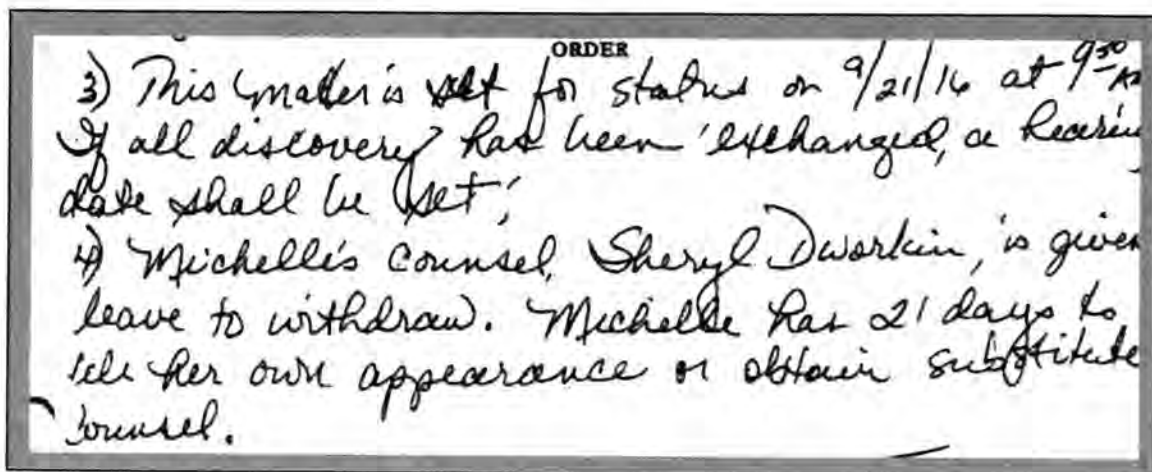 ORDER
3) This matter is set for status on 9/21/16 at 9:30 AM
If all discovery has been exchanged, a hearing
date shall be set;
4) Michelle's counsel, Sheryl Dworkin, is given
leave to withdraw. Michelle has 21 days to
file her own appearance or obtain substitute
counsel.